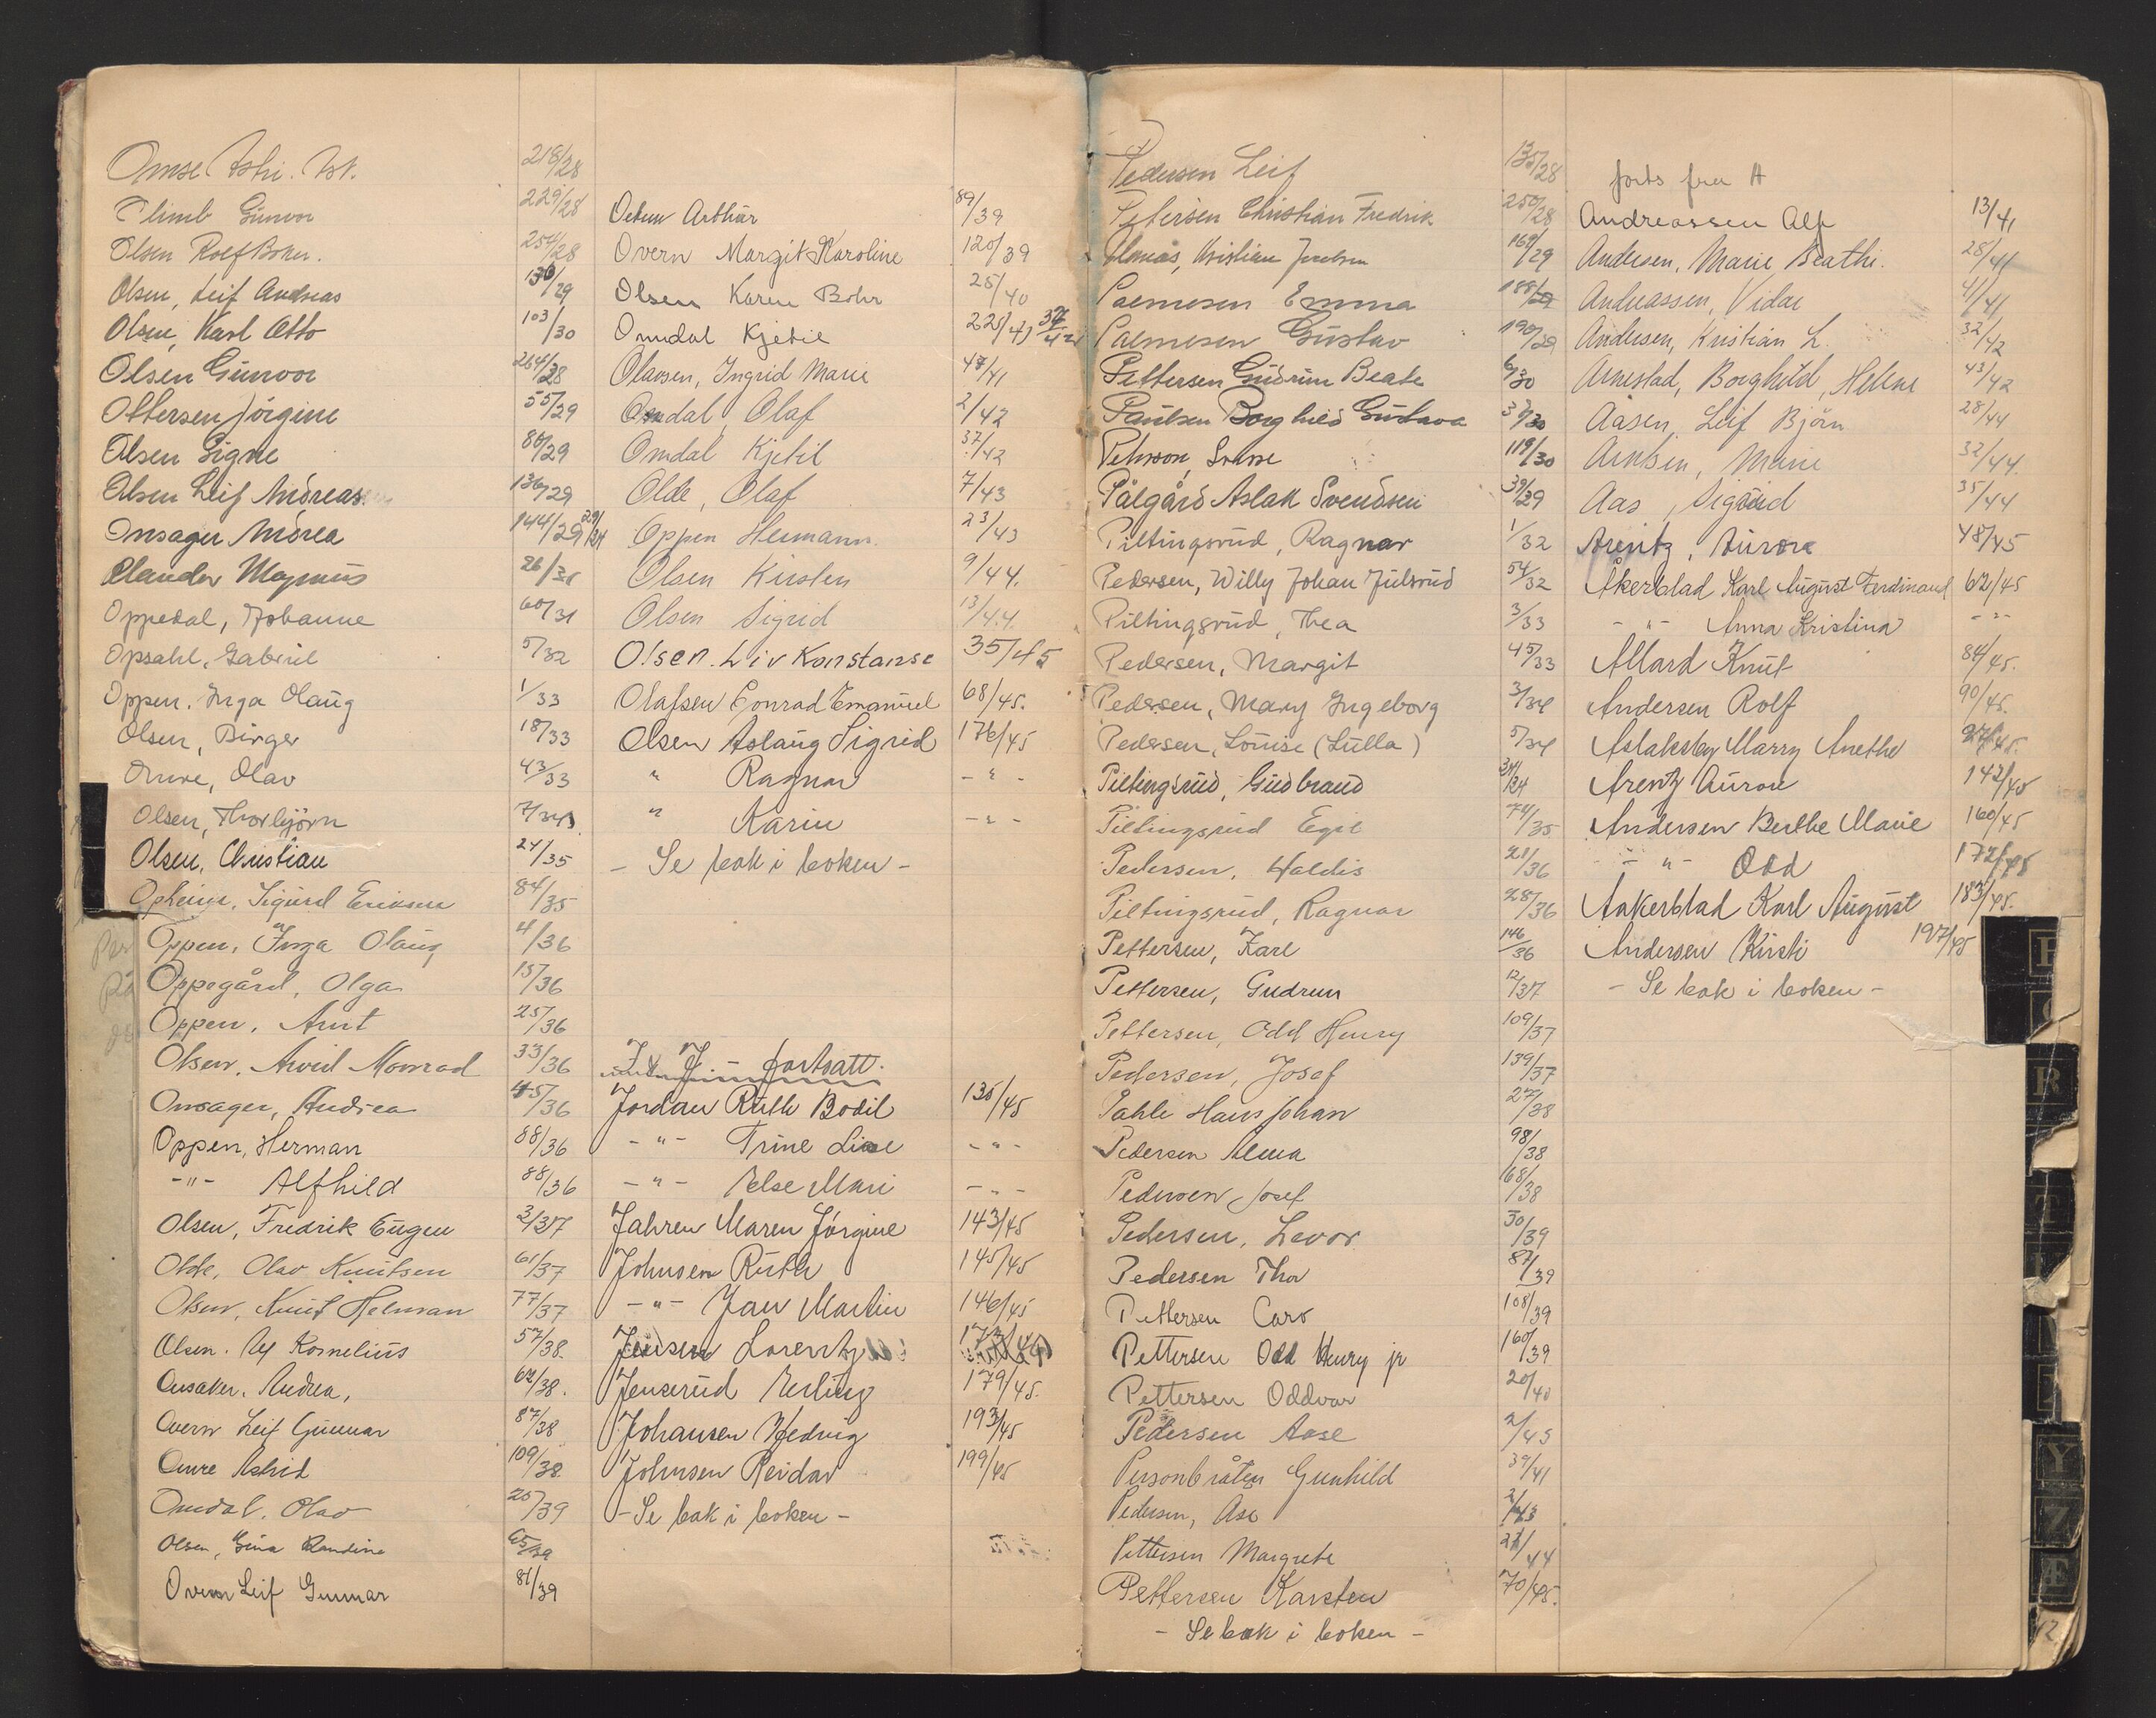 Omse 218/28
Gunvor 229/28
Olsen Rolf 254/28
Olsen, Leif Andreas 136/29
Olsen, Karl Otto 103/30
Olsen Gunvor 264/28
Ottersen Jörgine 55/29
Olsen Signe 80/29
Olsen Leif Andreas 136/29
Onsager Andrea 144/29
Olander Magnus 26/31
Oppedal, Johanne 60/31
Opsahl, Gabriel 5/32
Oppen, Inga Olaug 1/33
Olsen, Birger 18/33
Omre, Olav 43/33
Olsen, Thorbjörn 7/34
Olsen, Christian 24/35
Opheim, Sigurd Eriksen 84/35
Oppen, Inga Olaug 4/36
Oppegård, Olga 15/36
Oppen, Arnt 25/36
Olsen, Arvid Monrad 33/36
Onsager, Andrea 45/36
Oppen, Herman 88/36
-"- Alfhild 88/36
Olsen, Fredrik Eugen 3/37
Olde, Olav Knutsen 61/37
Olsen, Knut Helman 77/37
Olsen, Alf Kornelius 57/38
Onsaker, Andrea, 62/38.
Overn Leif Gunnar 87/38
Omre Astrid 109/38
Omdal, Olav 25/39
Olsen, Gina Randine 65/39
Overn Leif Gunnar 81/39
Arthur 89/39
Overn Margit Karoline 120/39
Olsen Karen Bohr 25/40
Omdal Kjetil 22/41 37/42
Olavsen, Ingrid Marie 47/41
Omdal, Olaf 2/42
Omdal Kjetil 37/42
Olde, Olaf 7/43
Oppen Hermann. 23/43
Olsen Kirsten 9/44.
Olsen Sigrid 13/44
Olsen. Liv Konstanse 35/45
Olafsen Conrad Emanuel 68/45.
Olsen Aslaug Sigrid 176/45
" Ragnar - " -
" Karin - " -
- Se bak i boken -
J - fortsatt.
Jordan Ruth Bodil 135/45
- " - Trine Lise - " -
- " - Else Mari - " -
Jahren Maren Jörgine 143/45
Johnsen Ruth 145/45
- " - Jan Martin 146/45
Jensen Lorentz
Jenserud Erling 179/45.
Johansen Hedvig 193/45
Johnsen Reidar 199/45
- Se bak i boken -
Pedersen Leif 135/28
Petersen Christian Fredrik 250/28
Kristian 169/29
Palmesen Emma 188/29
Palmesen Gustav 190/29
Pettersen Gudrun Beate 6/30
Paulsen Borghild Gustava 37/30
119/30
Pålgård Aslak Svendsen 39/29
Piltingsrud, Ragnar 1/32
Pedersen, Willy Johan Julsrud 54/32
Piltingsrud, Thea 3/33
Pedersen, Margit 45/33
Pedersen, Mary Ingeborg 3/34
Pedersen, Louise (Lulla) 5/34
Piltingsrud, Gudbrand
Piltingsrud Egil 74/35
Pedersen, Haldis 21/36
Piltingsrud, Ragnar 28/36
Pettersen, Karl 146/36
Pettersen, Gudrun 12/37
Pettersen, Odd Henry 109/37
Pedersen, Josef 139/37
Pahle Hans Johan 27/38
Pedersen Alma 98/38
Pedersen Josef 68/38
Pedersen, Levor 30/39
Pedersen Thor 87/39
Pettersen Caro 108/39
Pettersen Odd Henry jr 160/39
Pettersen Oddvar 20/40
Pedersen Aase 2/43
Personbråten Gunhild 39/41
Pedersen, Åse 2/43
Pettersen Margrete 22/44
Pettersen Karsten 70/45.
- Se bak i boken -
forts fra A
Andreassen Alf 13/41
Andersen, Marie Beathe. 28/41
Andreassen, Vidar 41/41
Andersen, Kristian L. 32/42
Arnestad, Borghild, Helene 43/42
Aasen, Leif Björn 28/44
Arntsen, Marie 32/44.
Aas, Sigurd 35/44
Arentz, Aurora 48/45
Åkerblad Karl August Ferdinand 62/45
- " - Anna Kristina - " -
Allard Knut 84/45.
Andersen Rolf 90/45.
Aslaksby Marry Anethe
Arentz Aurore 142/45
Andersen Berthe Marie 160/45
- " - Odd 172/45
Aakerblad Karl August 183/45.
Andersen Kirsti 197/45
- Se bak i boken -
R
T
Y
Z
Æ